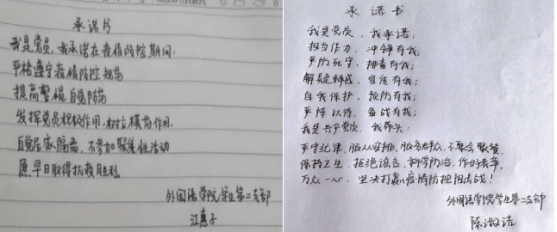 承诺书
我是党员,我承诺在疫情防控期间:
严格遵守疫情防控规范
提高警惕 自觉防范
发挥党员积极作用,树立模范作用
自觉居家隔离,不参加聚集性活动
愿早日取得抗疫胜利
外国语学院学生第二支部
江惠子
承诺书
我是党员,我承诺:
担当作为,冲锋有我;
严防死守,排查有我;
解疑释惑,宣传有我;
自我保护,预防有我;
严阵以待,备战有我;
我是共产党员,我带头:
严守纪律、服从安排、服务群众、不聚会聚餐
保持卫生、拒绝谣言、科学防治、作好表率
万众一心,坚决打赢疫情防控阻击战!
外国语学院学生第二支部
陈